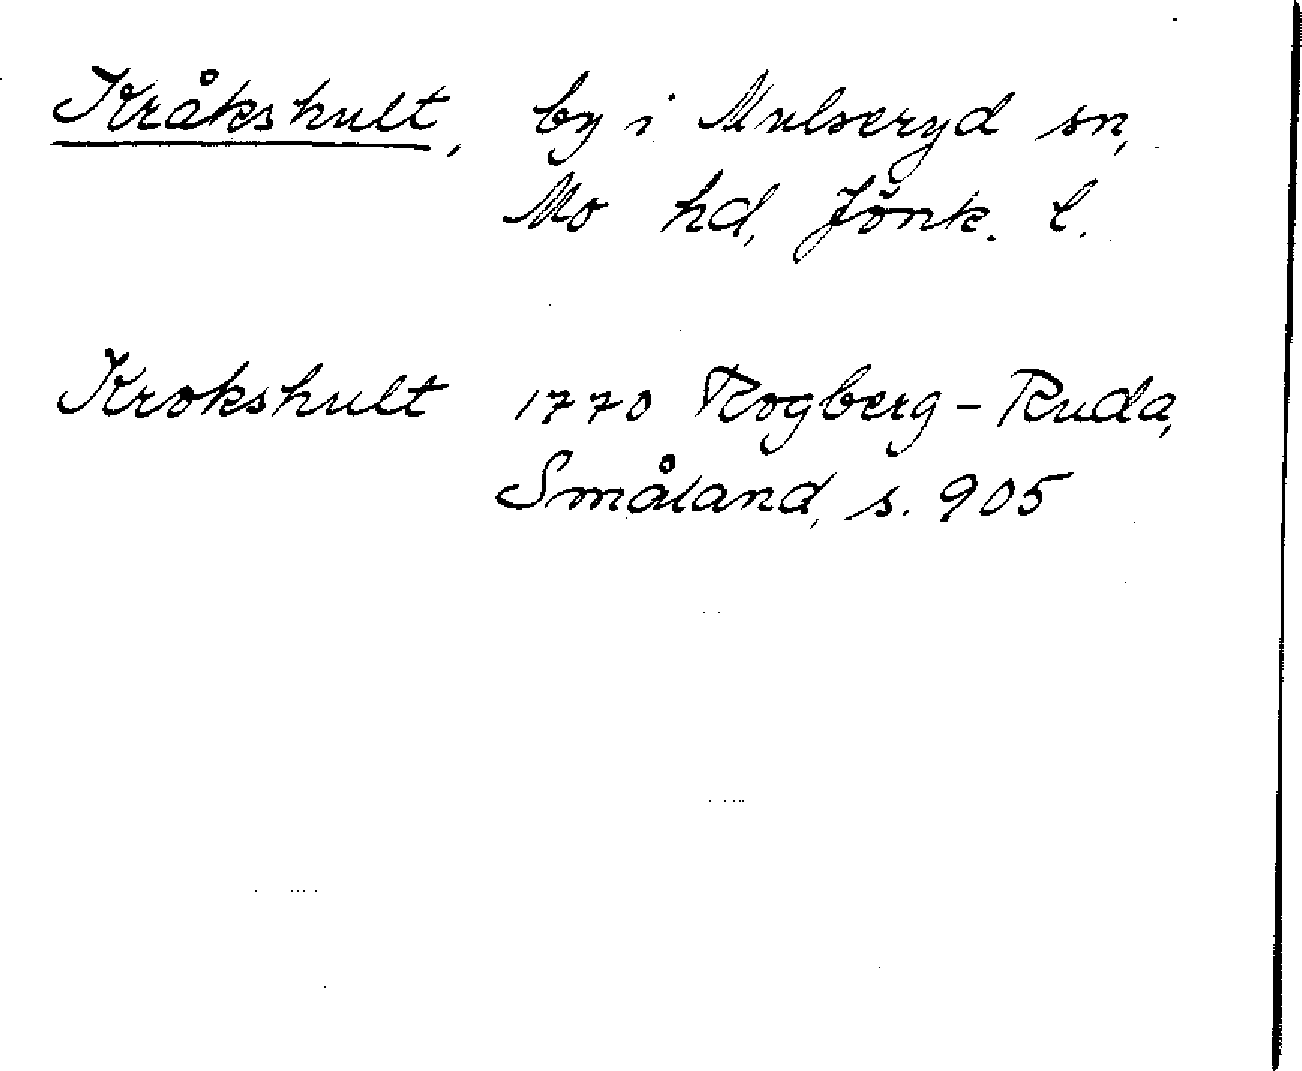 Kråkshult, by i Mulseryd sn,
Mo hd, Jönk. l.
Krokshult 1770 Rogberg-Ruda,
Småland, s. 905